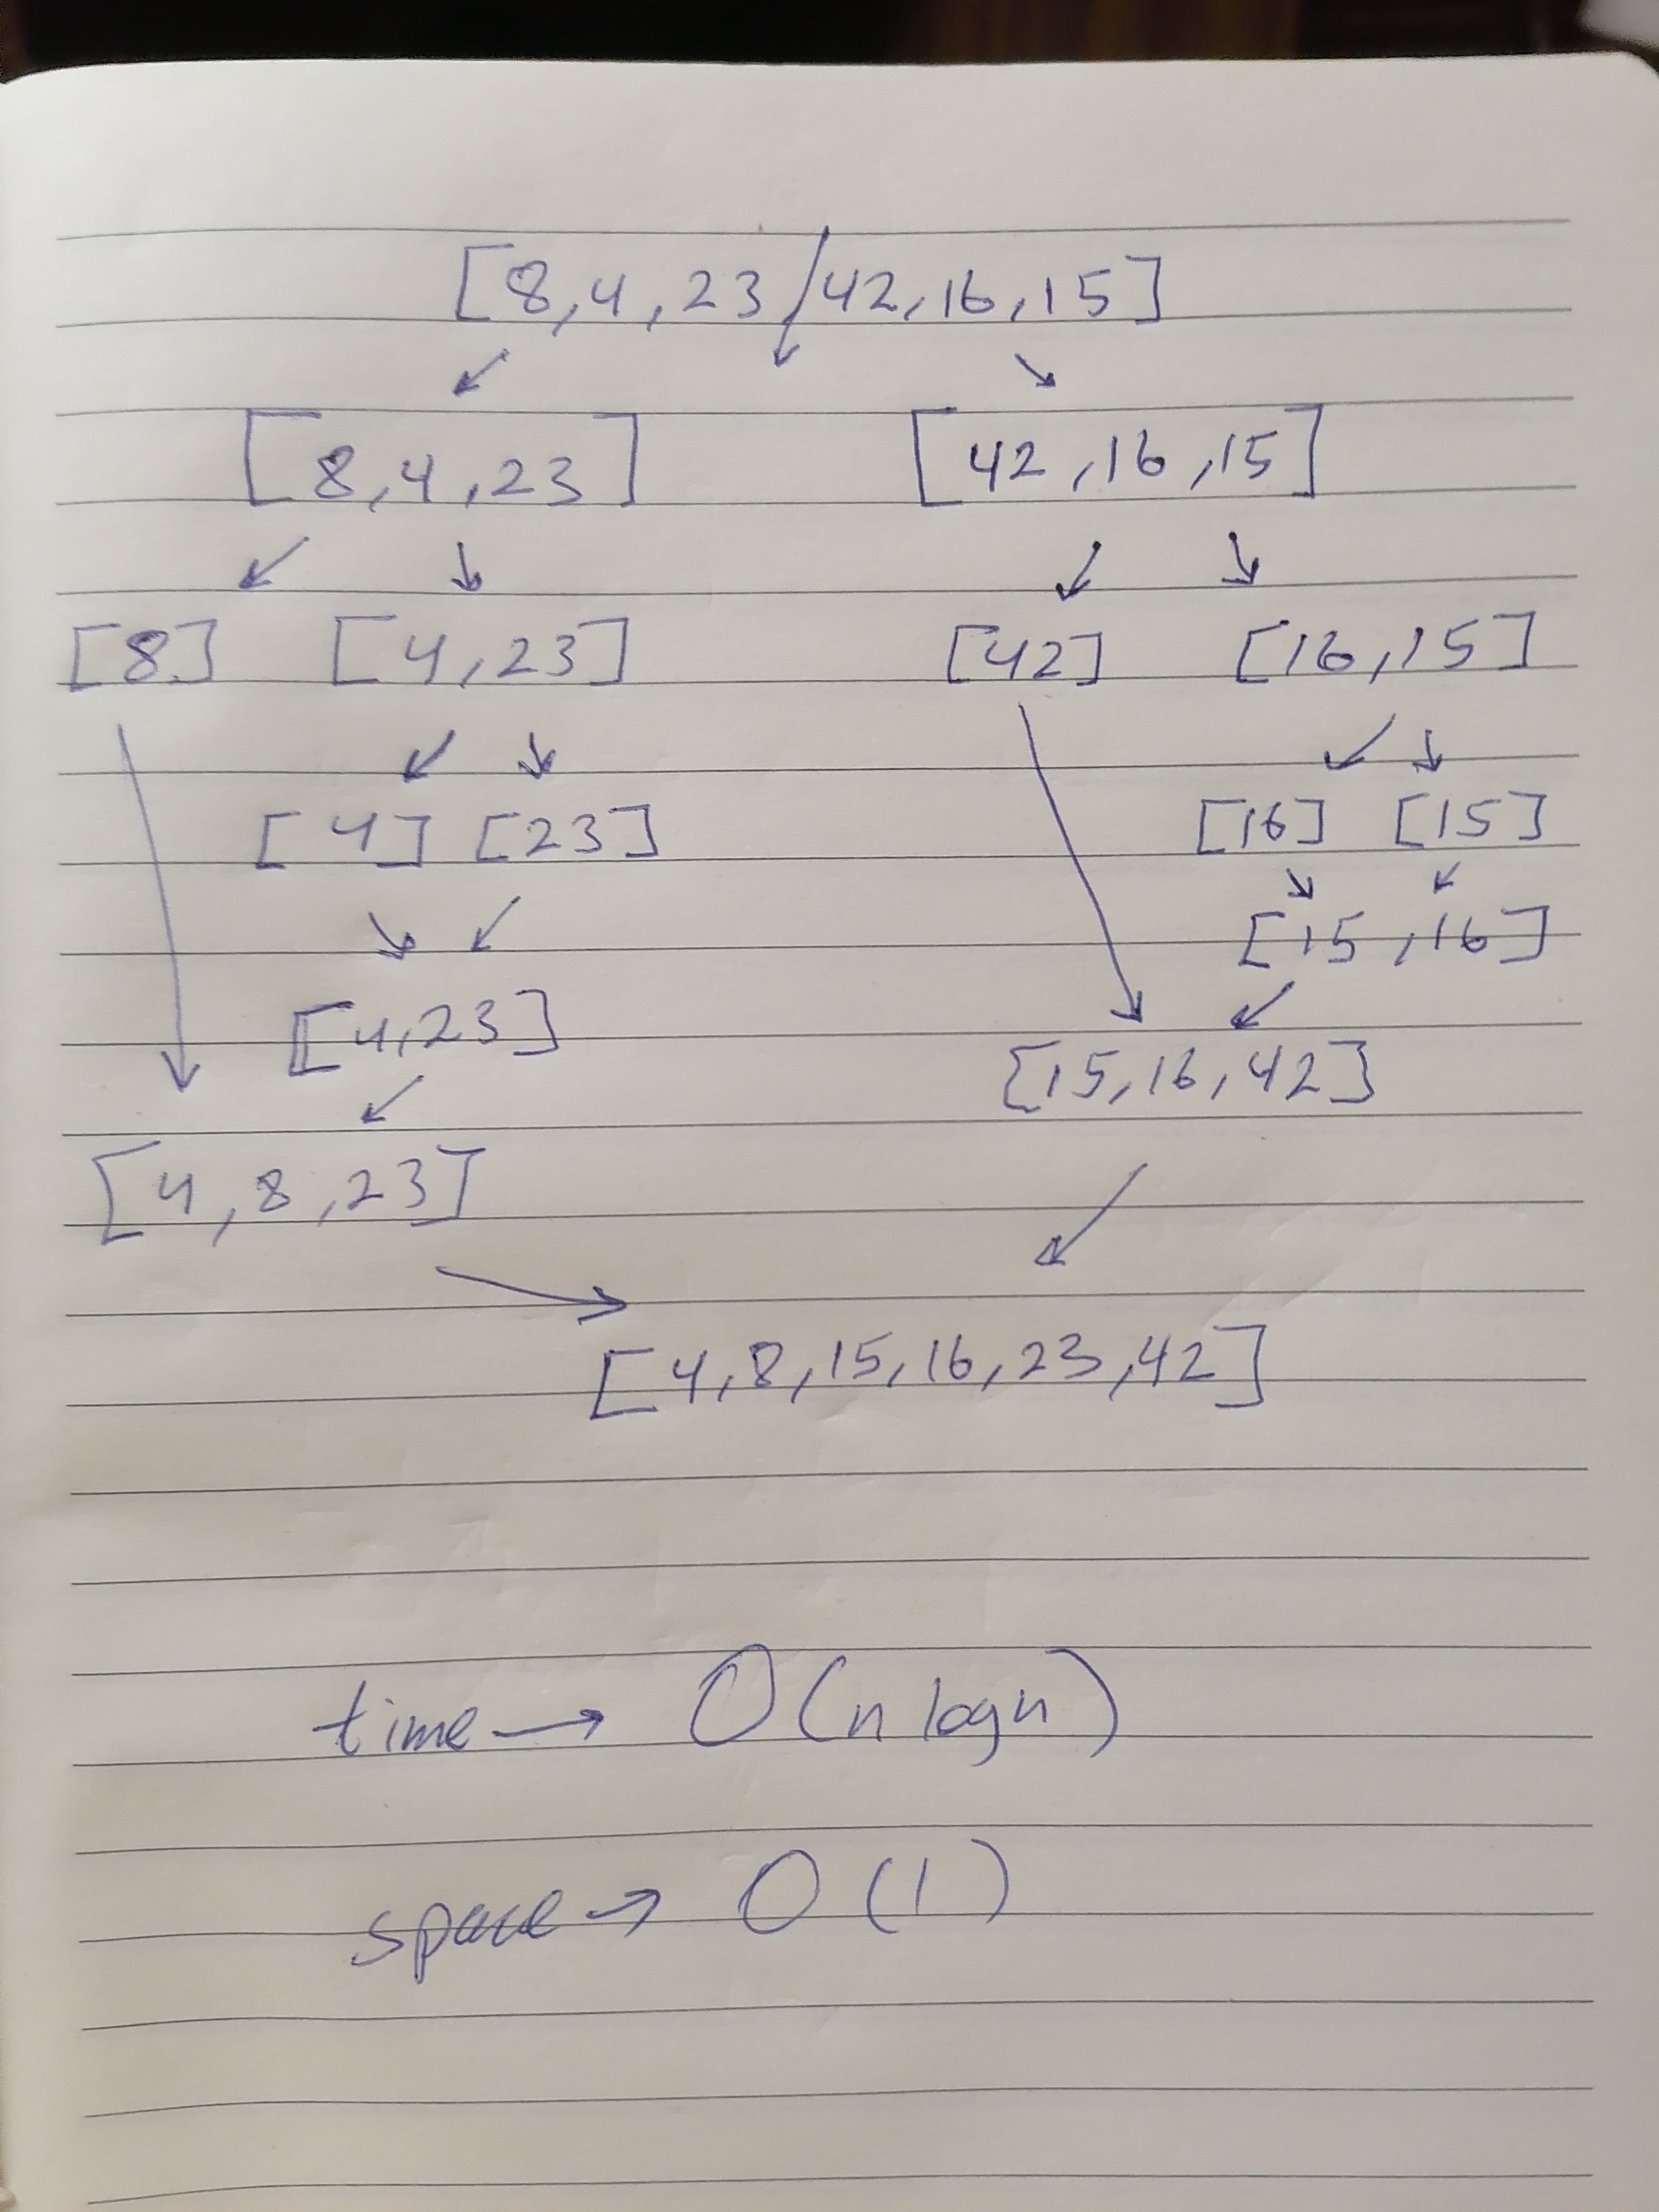 [8,4,23/42,16,15]
[8,4,23] [42,16,15]
[8] [4,23] [42] [16,15]
[4] [23] [16] [15]
[15,16]
[4,23]
[15,16,42]
[4,8,23]
[4,8,15,16,23,42]
time → O(n logn)
space → O(1)